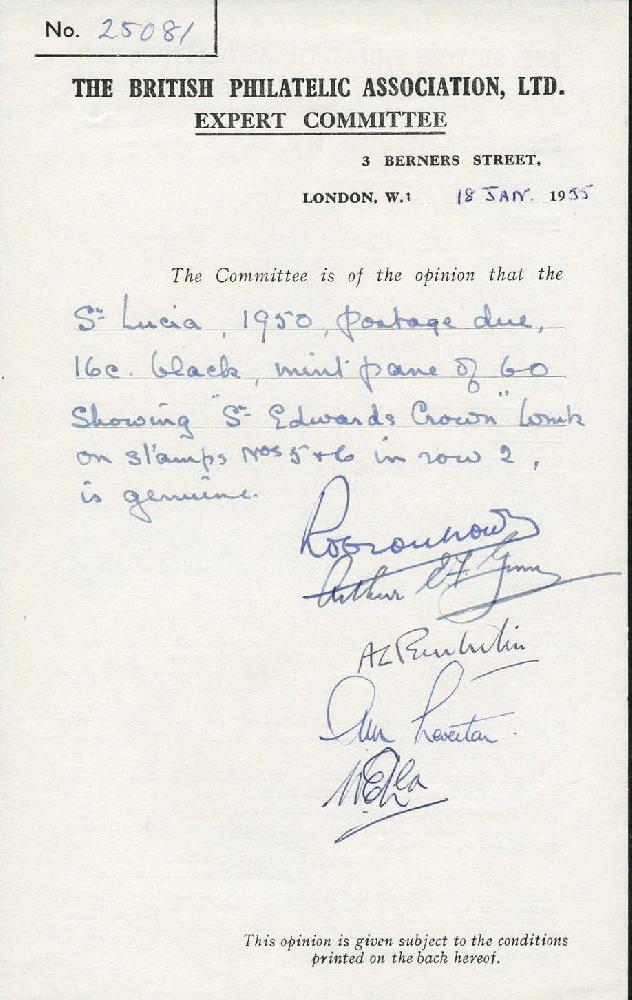 No. 25081
THE BRITISH PHILATELIC ASSOCIATION, LTD.
EXPERT COMMITTEE
3 BERNERS STREET,
LONDON, W.1 18 JAN. 1955
The Committee is of the opinion that the
St Lucia, 1950, postage due,
16c. black, mint pane of 60
Showing "St Edwards Crown" wmk
on stamps Nos 5+6 in row 2,
is genuine.
Arthur
This opinion is given subject to the conditions
printed on the back hereof.